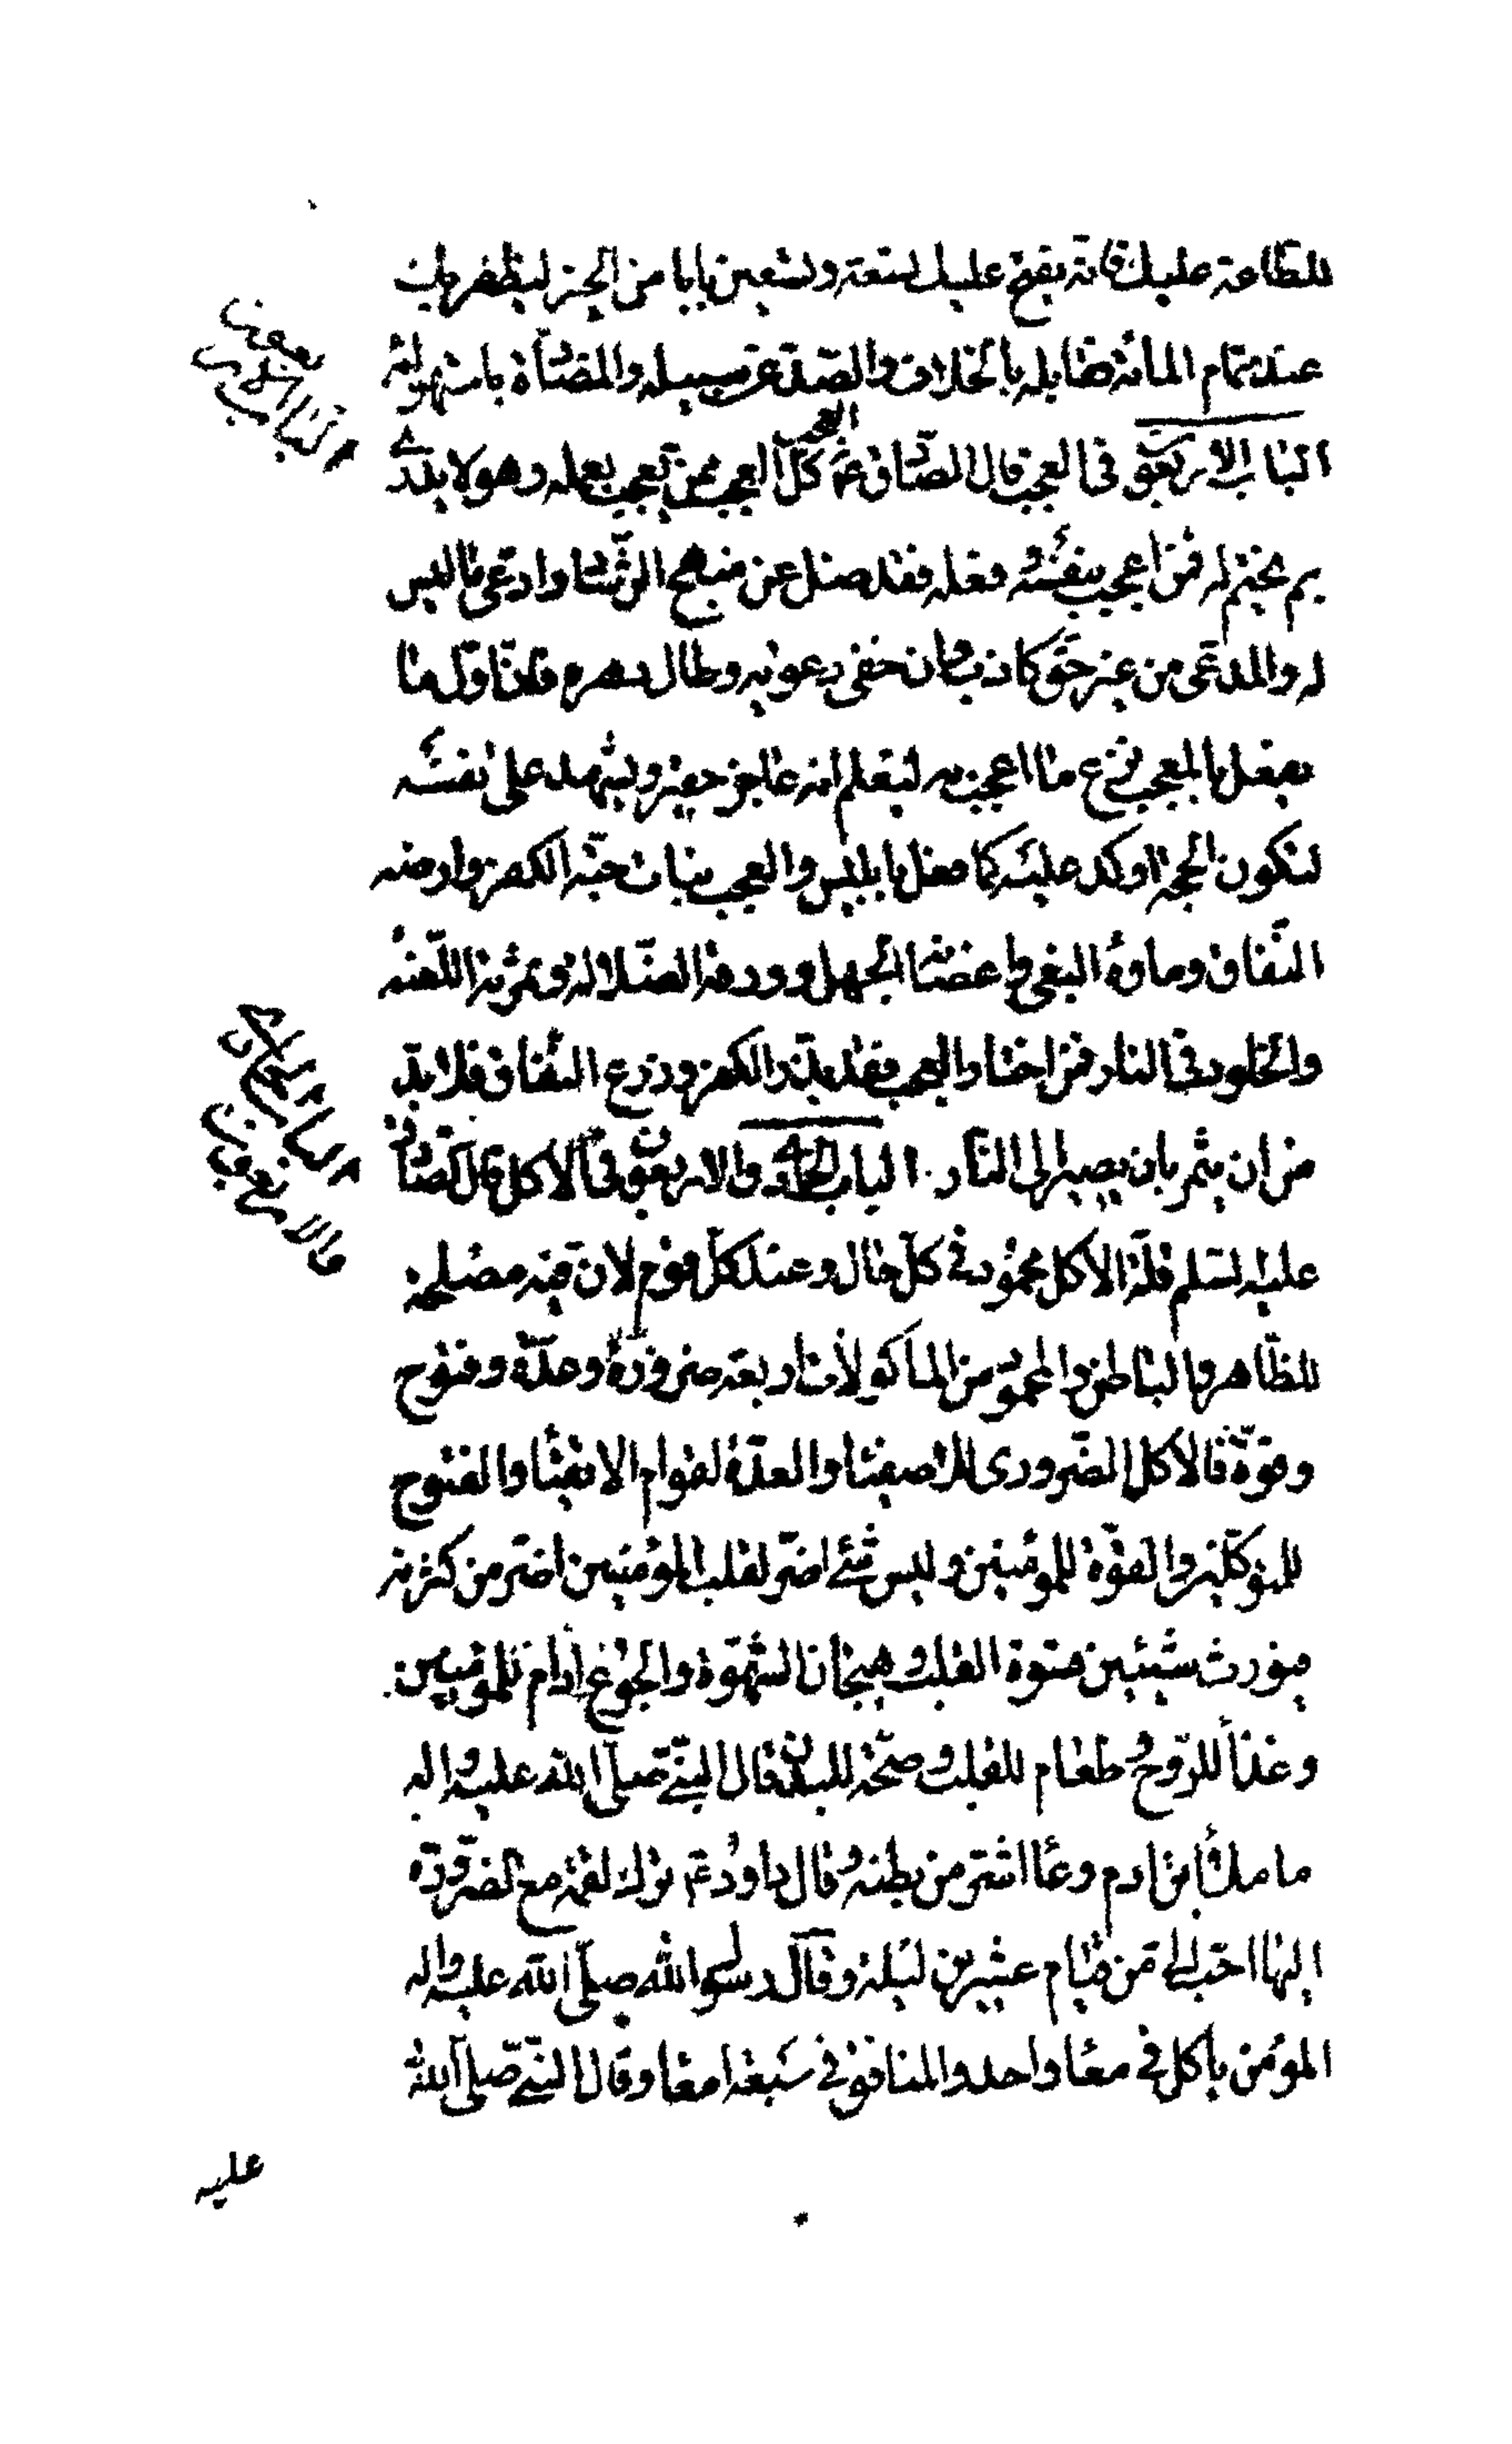 للطاعة عليك فانه يفتح عليك تسعة وتسعين بابا من الخير ليظفر بك
عند تمام المائة فقابله بالخلاف والصد عن سبيله والمضادة باستهوائه
الباب الاربعون في العجب قال الصادق ع العجب كل العجب ممن يعجب بعمله وهو لا يدري
بم يختم له فمن اعجب بنفسه وفعله فقد ضل عن منهج الرشاد وادعى ما ليس
له والمدعى من غير حق كاذب وان خفى دعويه وطال دهره فان اول ما
يفعل بالمعجب نزع ما اعجب به ليعلم انه عاجز حقير ويشهد على نفسه
لتكون الحجة اوكد عليه كما فعل بابليس والعجب نبات حبه الكفر وارضه
النفاق وماؤه البغى واغصانه الجهل وورقه الضلالة وثمرته اللعنة
والخلود في النار فمن اختار العجب فقد بذر الكفر وزرع النفاق فلا بد
من ان يثمر بان يصير الى النار الباب الحادي والاربعون في الاكل قال الصادق
عليه لسلم قلة الاكل محمود في كل حال وعند كل قوم لان فيه مصلحة
للظاهر والباطن والمحمود من الماكولات اربعة ضرورة وعدة وفتوح
وقوة فالاكل الضروري للاصفياء والعدة لقوام الاتقياء والفتوح
للمتوكلين والقوة للمؤمنين وليس شئ اضر لقلب المؤمنين اضر من كثرته
فيورث شيئين قسوة القلب وهيجان الشهوة والجوع ادام للمؤمنين
وغذاء للروح وطعام للقلب وصحة للبدن قال النبي صلى الله عليه واله
ما ملأ ابن ادم وعاء اشر من بطنه وقال داود ع ترك لقمة مع الضرورة
اليها احب الى من قيام عشرين ليلة وقال رسول الله صلى الله عليه واله
المؤمن يأكل في معاء واحد والمنافق في سبعة امعاء وقال النبي صلى الله
عليه